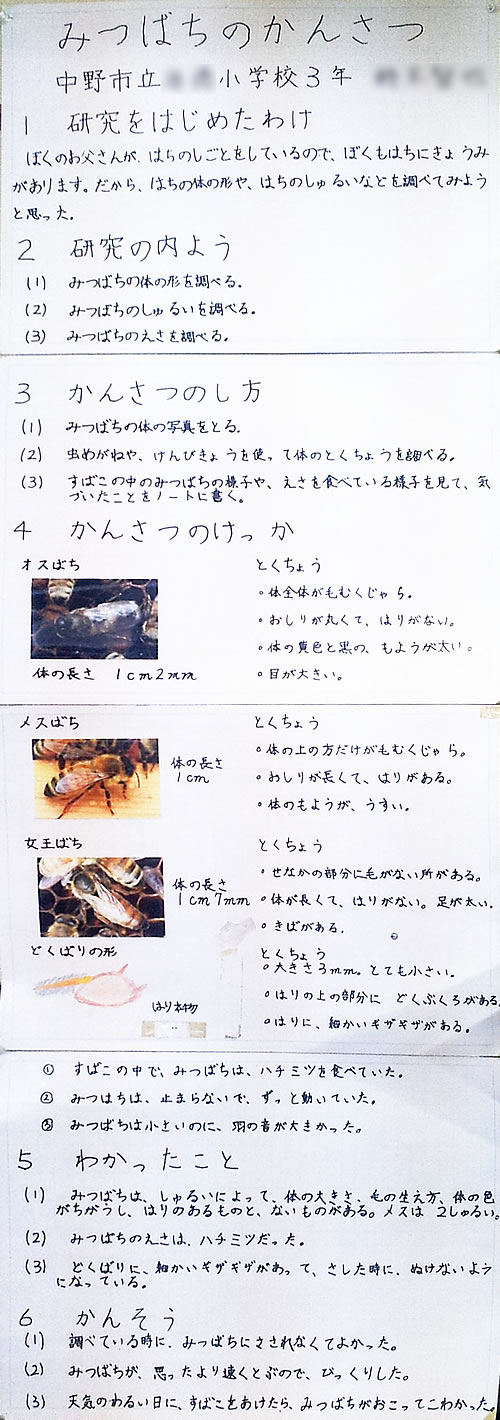 みつばちのかんさつ
中野市立 小学校3年
1 研究をはじめたわけ
ぼくのお父さんが、はちのしごとをしているので、ぼくもはちにきょうみ
があります。だから、はちの体の形や、はちのしゅるいなどを調べてみよう
と思った。
2 研究の内よう
(1) みつばちの体の形を調べる。
(2) みつばちのしゅるいを調べる。
(3) みつばちのえさを調べる。
3 かんさつのし方
(1) みつばちの体の写真をとる。
(2) 虫めがねや、けんびきょうを使って体のとくちょうを調べる。
(3) すばこの中のみつばちの様子や、えさを食べている様子を見て、気
づいたことをノートに書く。
4 かんさつのけっか
オスばち
体の長さ 1cm2mm
とくちょう
・体全体が毛むくじゃら。
・おしりが丸くて、はりがない。
・体の黄色と黒の、もようが太い。
・目が大きい。
メスばち
体の長さ
1cm
とくちょう
・体の上の方だけがもむくじゃら。
・おしりが長くて、はりがある。
・体のもようが、うすい。
女王ばち
体の長さ
1cm7mm
とくちょう
・せなかの部分に毛がない所がある。
・体が長くて、はりがない。足が太い。
・きばがある。
どくばりの形
はり本物
とくちょう
・大きさ3mm。とても小さい。
・はりの上の部分に どくぶくろがある
・はりに、細かいギザギザがある。
① すばこの中で、みつばちは、ハチミツを食べていた。
② みつはちは、止まらないで、ずっと動いていた。
③ みつばちは小さいのに、羽の音が大きかった。
5 わかったこと
(1) みつばちは、しゅるいによって、体の大きさ、毛の生え方、体の色
がちがうし、はりのあるものと、ないものがある。メスは 2しゅるい。
(2) みつばちのえさは、ハチミツだった。
(3) どくばりに、細かいギザギザがあって、さした時に、ぬけないよう
になっている。
6 かんそう
(1) 調べている時に、みつばちにさされなくてよかった。
(2) みつばちが、思ったより速くとぶので、びっくりした。
(3) 天気のわるい日に、すばこをあけたら、みつばちがおこってこわかった。